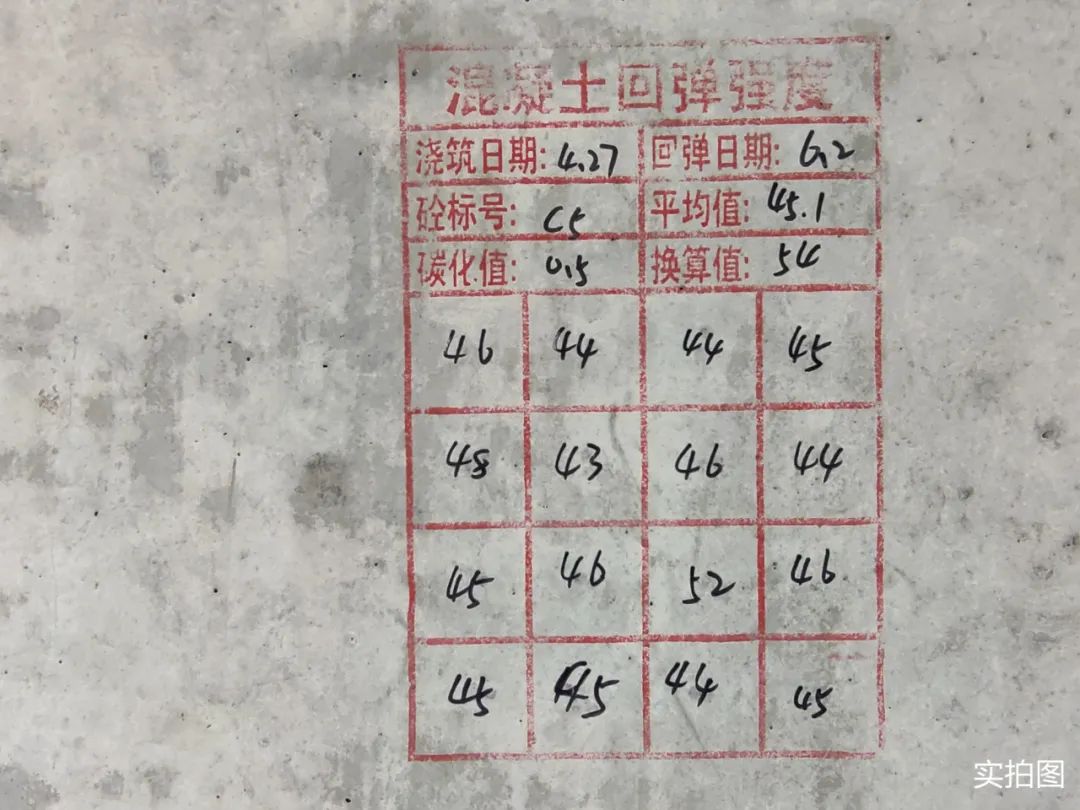 混凝土回弹强度
浇筑日期: 4.27 回弹日期: 6.2
砼标号: C5 平均值: 45.1
碳化值: 0.5 换算值: 54
46 44 44 45
48 43 46 44
45 46 52 46
45 45 44 45
实拍图